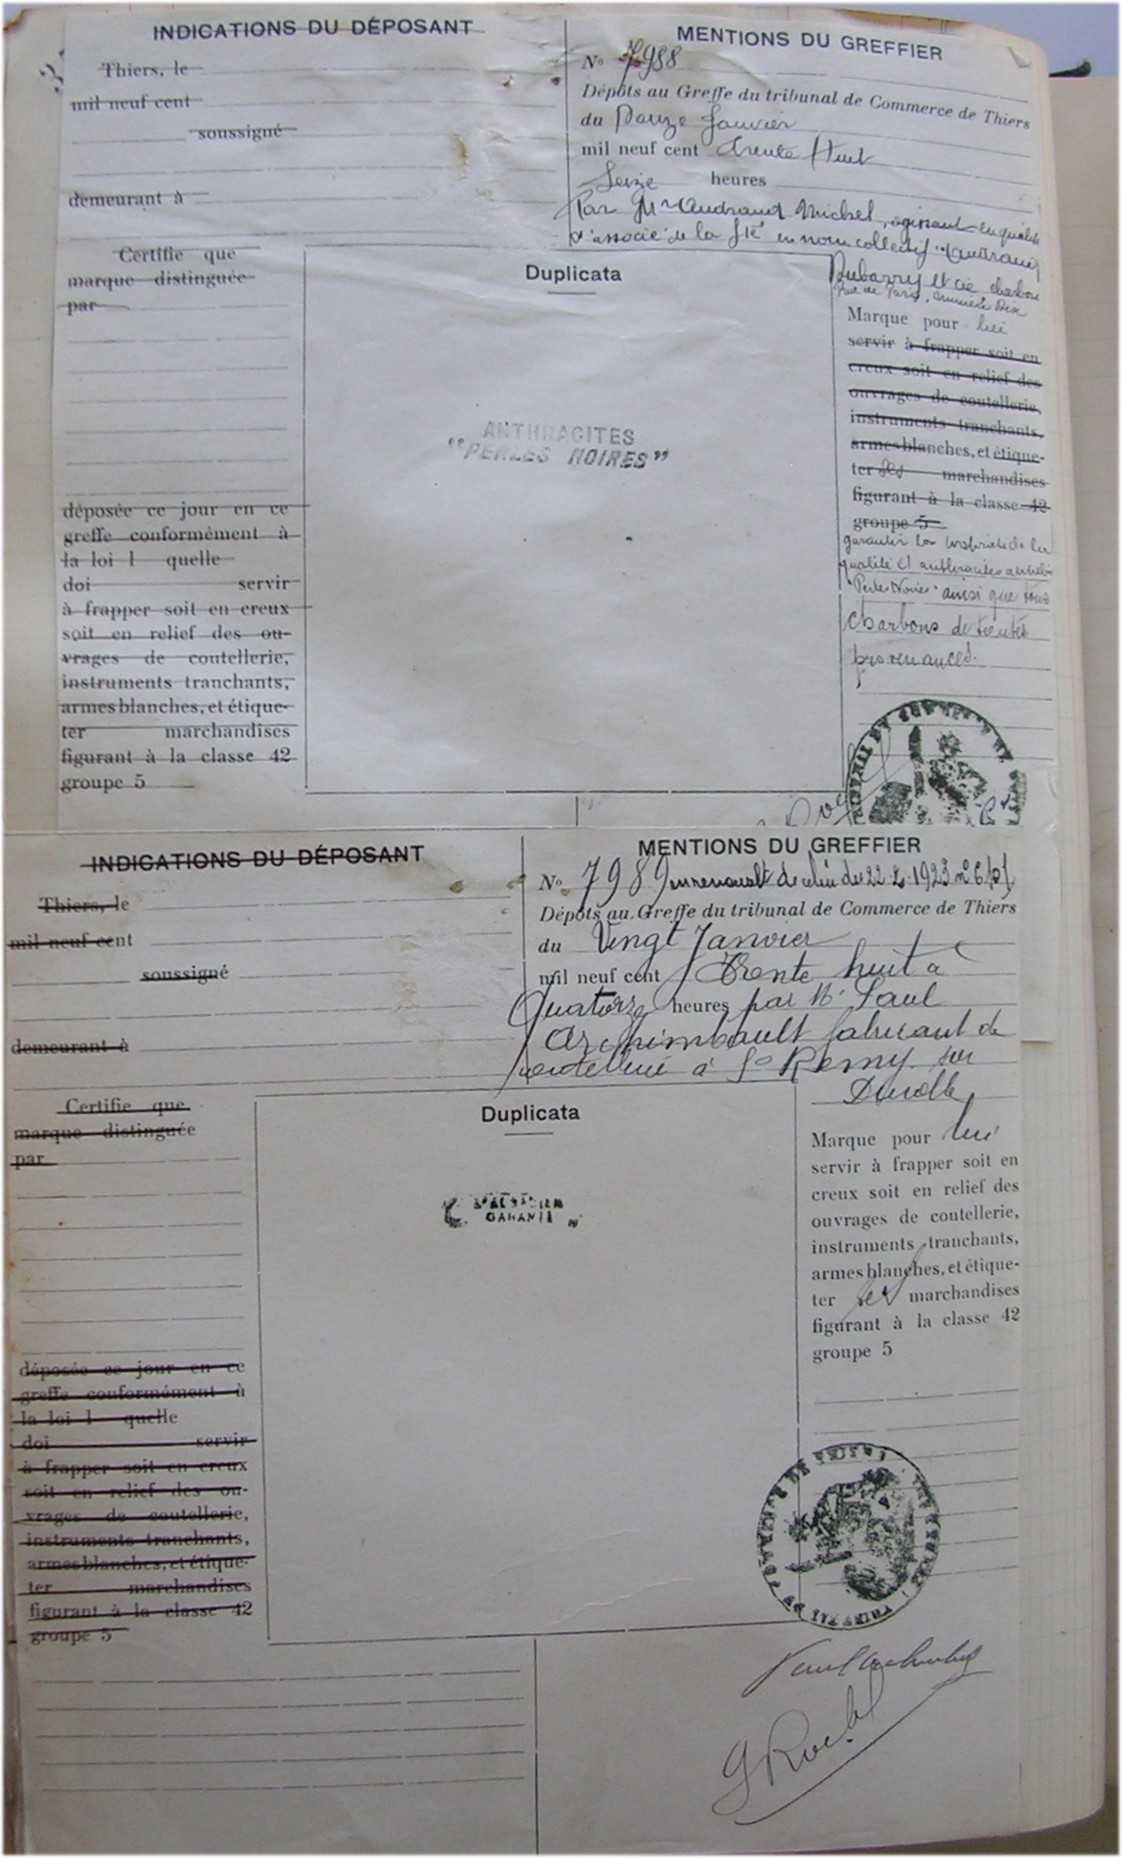 INDICATIONS DU DÉPOSANT
Thiers, le
mil neuf cent
soussigné
demeurant à
Certifie que
marque distinguée
par
déposée ce jour en ce
greffe conformément à
la loi l quelle
doi servir
à frapper soit en creux
soit en relief des ou-
vrages de coutellerie,
instruments tranchants,
armes blanches, et étique-
ter marchandises
figurant à la classe 42
groupe 5
MENTIONS DU GREFFIER
No 7988
Dépôts au Greffe du tribunal de Commerce de Thiers
du Douze Janvier
mil neuf cent Trente Huit
Seize heures
Par Mr Audraud Michel, agissant en qualité
d'associé de la Sté en nom collectif "Audraud
Dubarry et Cie charbons
rue de Paris, numéro Dix
Duplicata
ANTHRACITES
"PERLES NOIRES"
Marque pour lui
servir à frapper soit en
creux soit en relief des
ouvrages de coutellerie,
instruments tranchants,
armes blanches, et étique-
ter ses marchandises
figurant à la classe 42
groupe 5
garantir la propriété de la
qualité d'anthracites
"Perles Noires" ainsi que tous
charbons de toutes
provenances.
INDICATIONS DU DÉPOSANT
Thiers, le
mil neuf cent
soussigné
demeurant à
Certifie que
marque distinguée
par
déposée ce jour en ce
greffe conformément à
la loi l quelle
doi servir
à frapper soit en creux
soit en relief des ou-
vrages de coutellerie,
instruments tranchants,
armes blanches, et étique-
ter marchandises
figurant à la classe 42
groupe 5
MENTIONS DU GREFFIER
No 7989 de celui du 22.2.1923 no
Dépôts au Greffe du tribunal de Commerce de Thiers
du Vingt Janvier
mil neuf cent Trente huit à
Quatorze heures par M. Paul
Archimbault fabricant de
coutellerie à St Remy sur
Durolle
Duplicata
GARANTI
Marque pour lui
servir à frapper soit en
creux soit en relief des
ouvrages de coutellerie,
instruments tranchants,
armes blanches, et étique-
ter ses marchandises
figurant à la classe 42
groupe 5